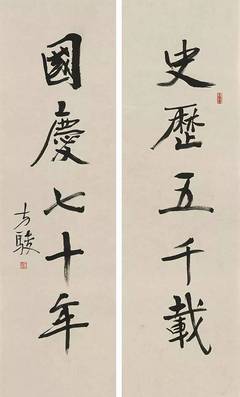 史歷五千載
國慶七十年
方駿